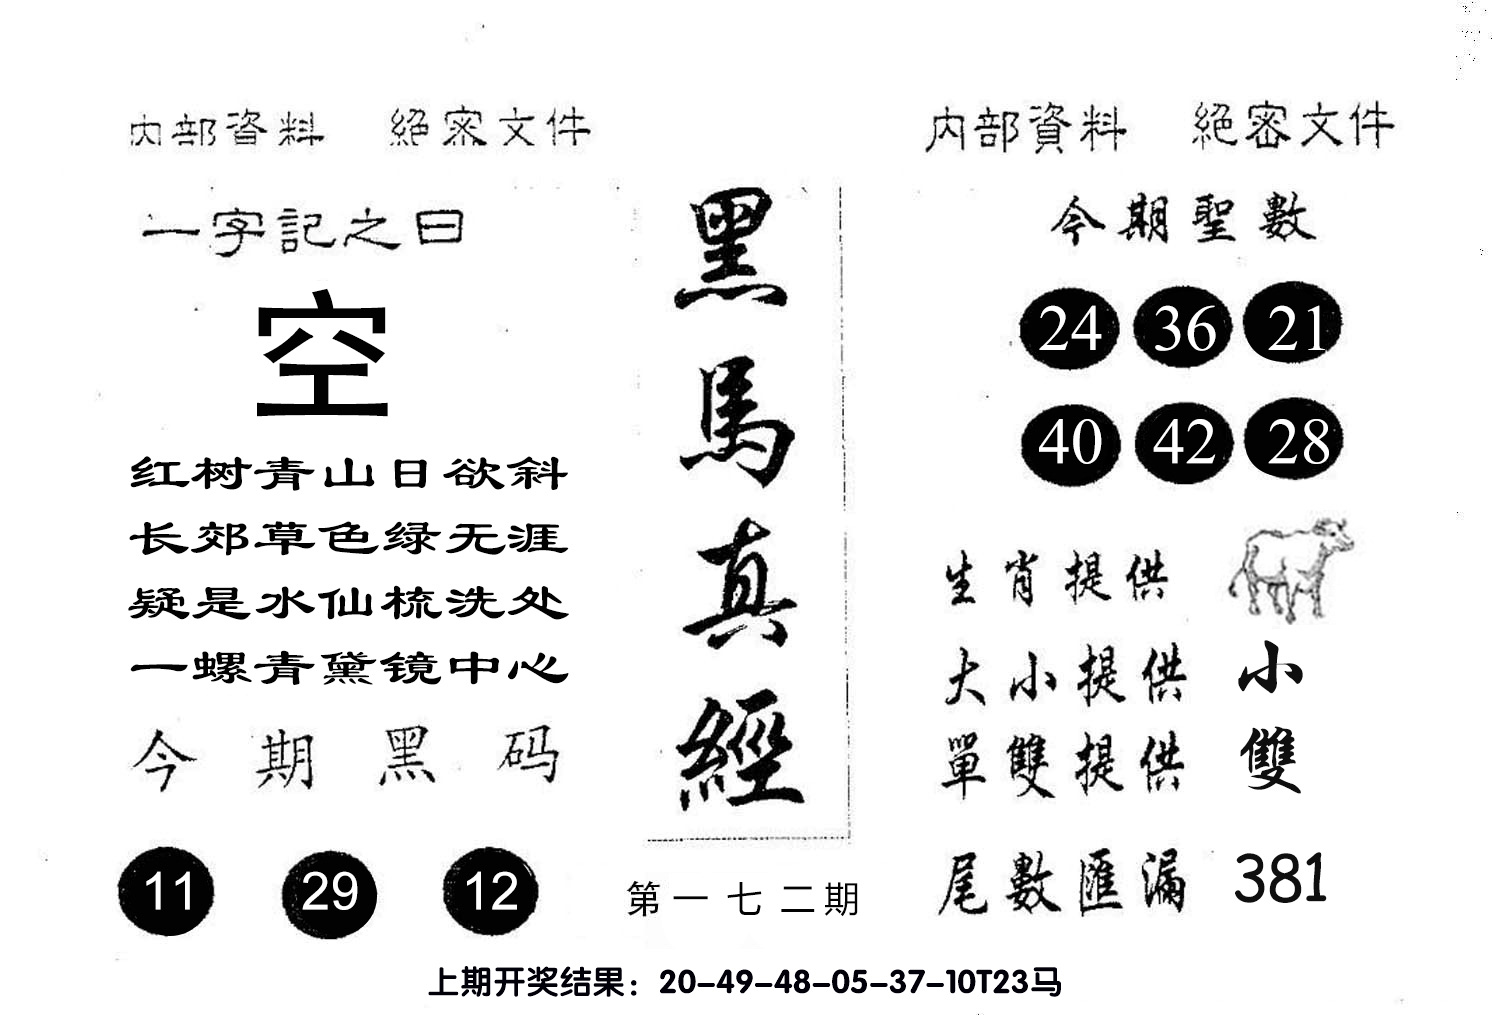 内部資料 絕密文件
一字記之曰
空
红树青山日欲斜
长郊草色绿无涯
疑是水仙梳洗处
一螺青黛镜中心
今期黑码
11 29 12
黑馬真經
第一七二期
内部資料 絕密文件
今期聖數
24 36 21
40 42 28
生肖提供
大小提供 小
單雙提供 雙
尾數匯漏 381
上期开奖结果：20-49-48-05-37-10T23马